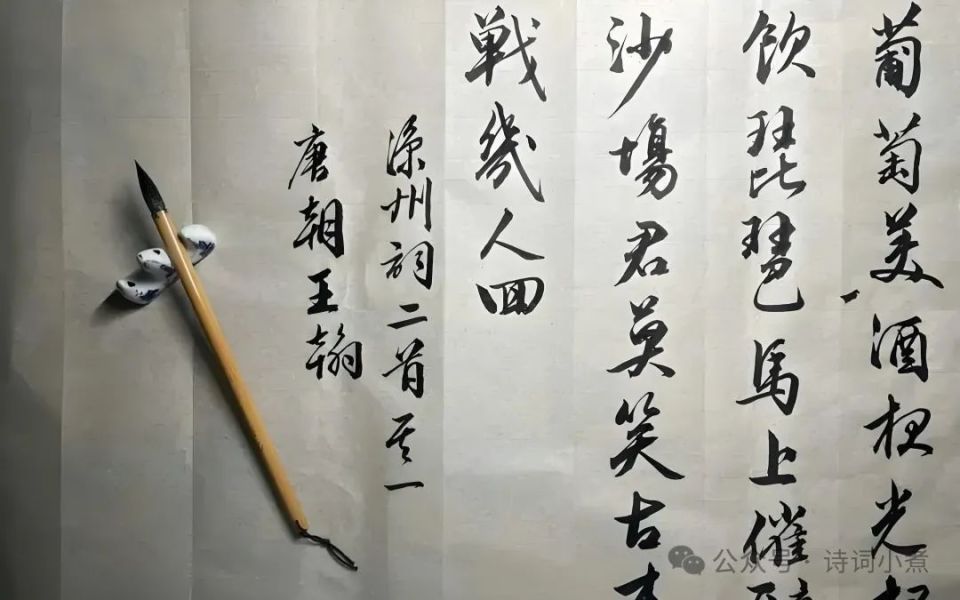 葡萄美酒夜光
飲琵琶馬上催
沙場君莫笑古
戦幾人回
涼州詞二首其一
唐朝王翰
公众号 · 诗词小煮